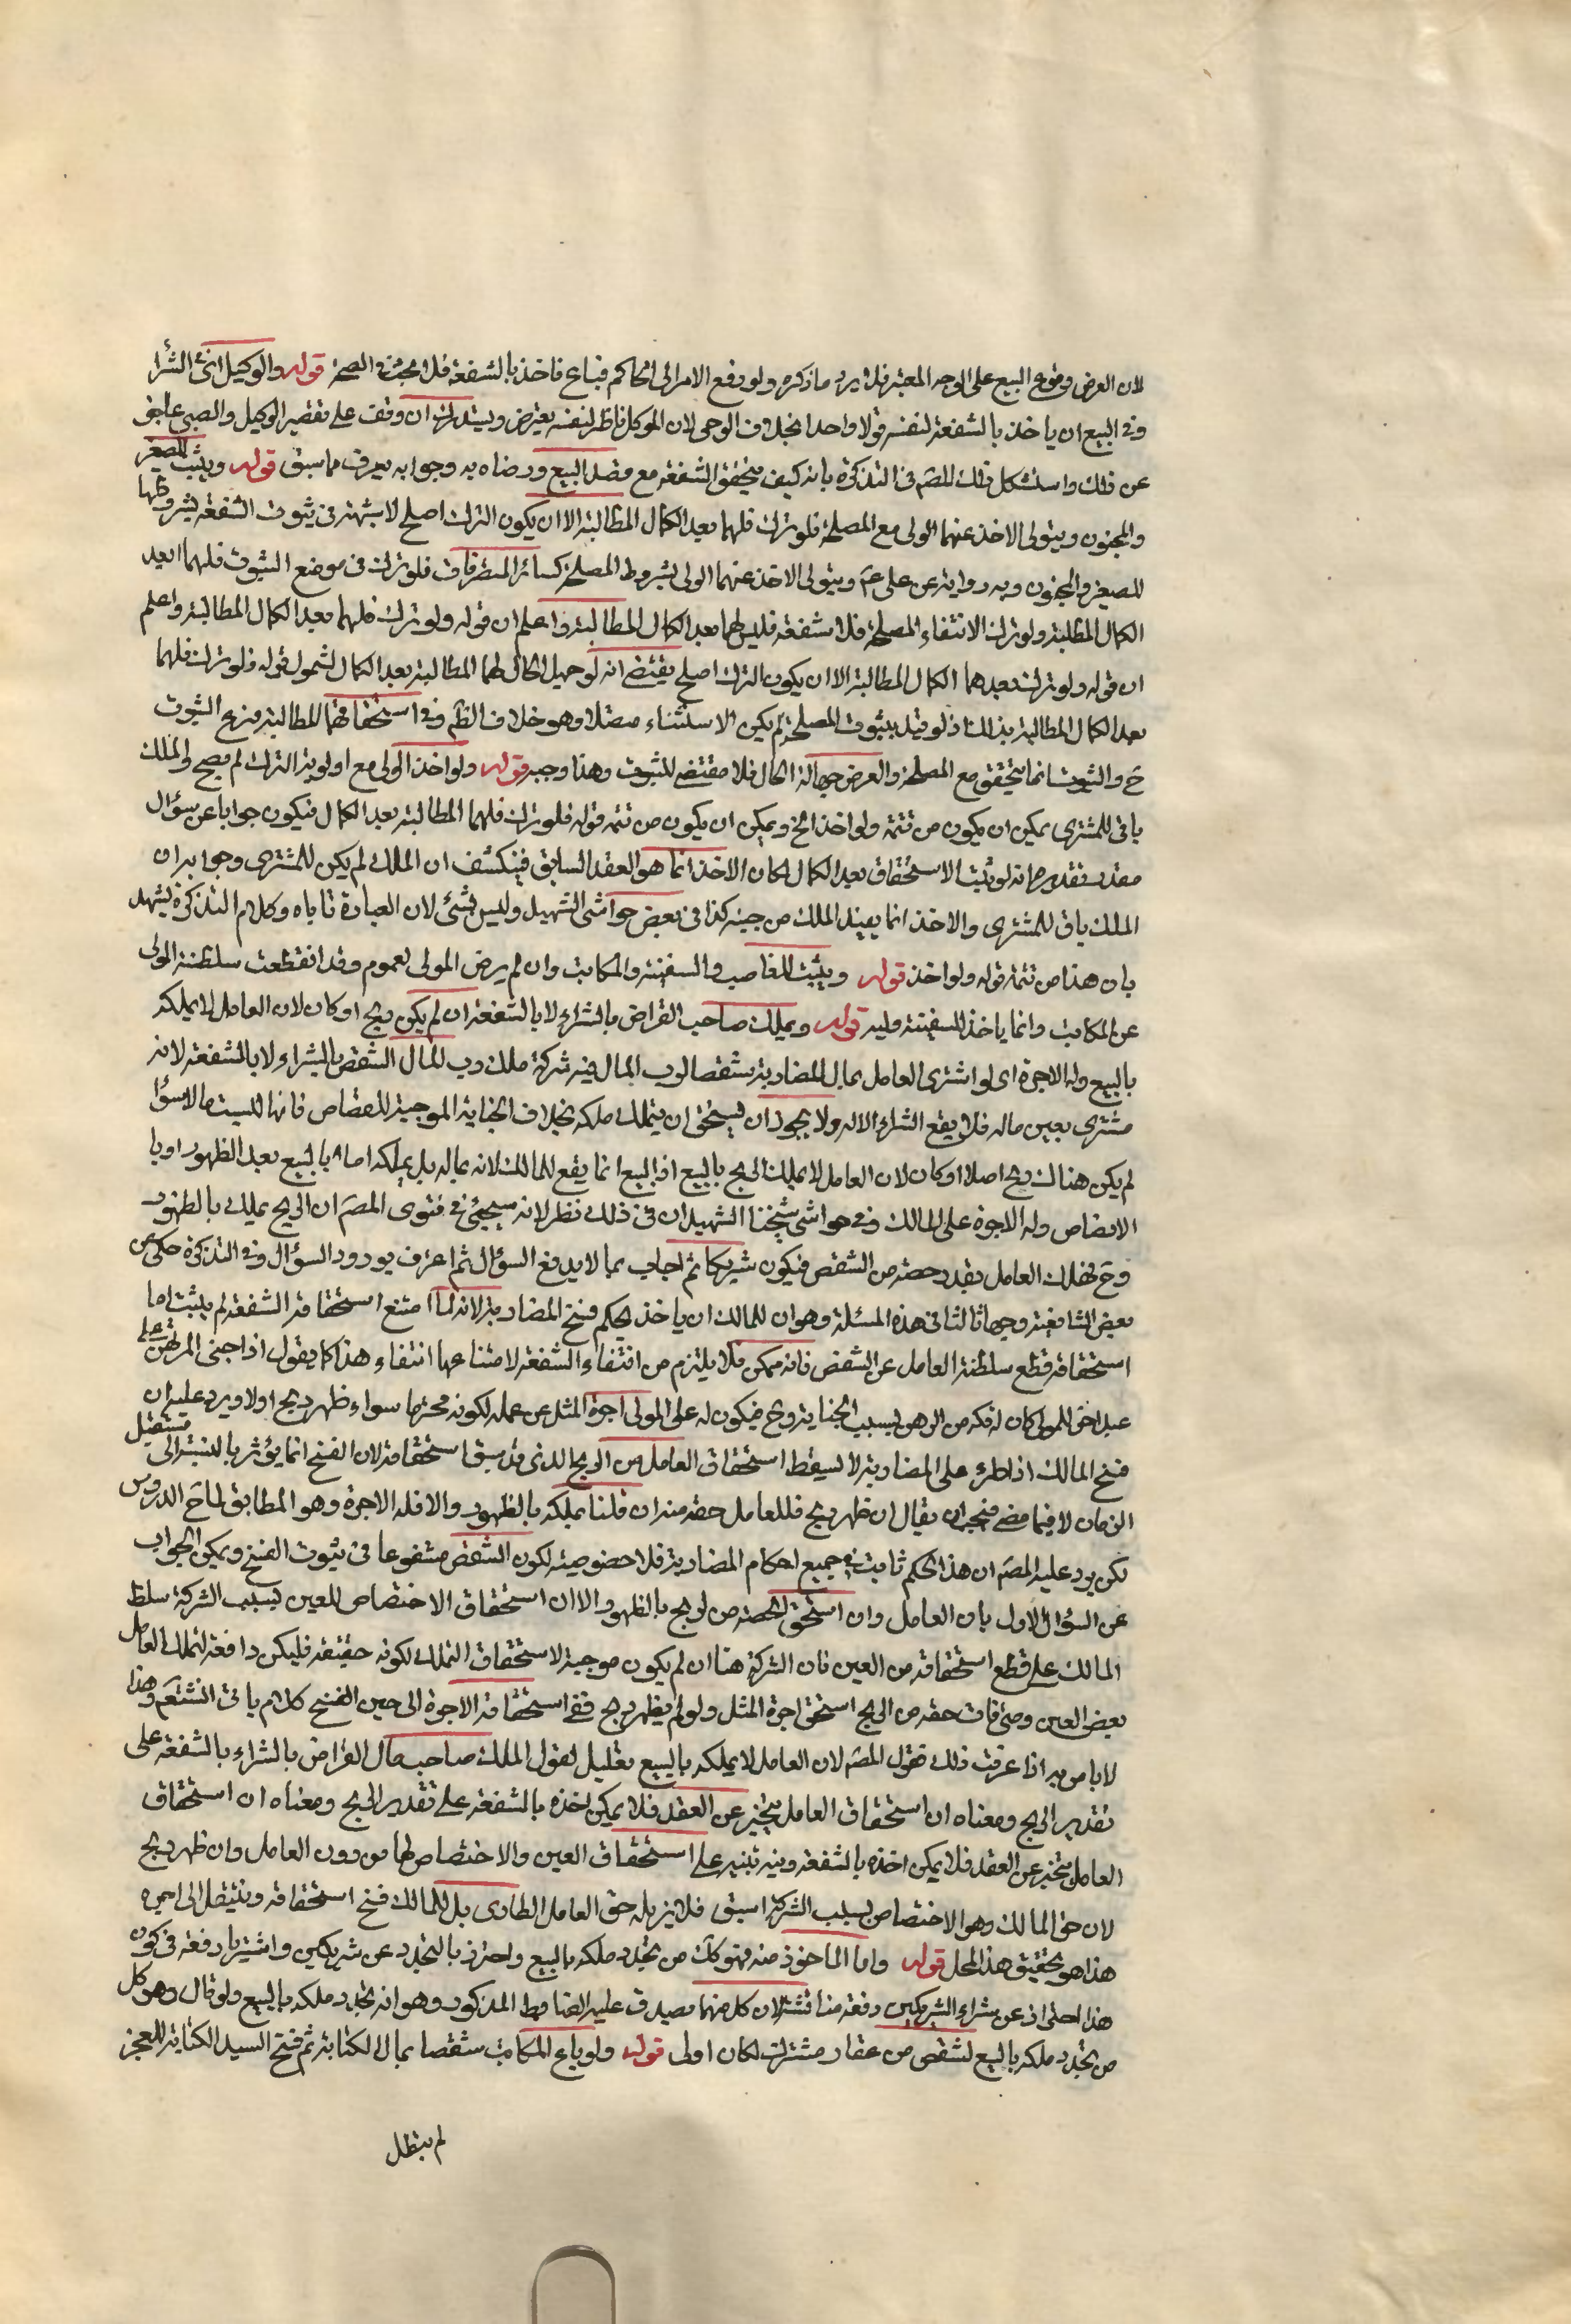 لان الغرض وقوع البيع على الوجه المعتبر فلا يرد ما ذكره ولو رفع الامر الى الحاكم فباع فاخذ بالشفعة فلا بحث في الصحة قوله والوكيل في الشرا
وفي البيع ان ياخذ بالشفعة لنفسه قولا واحدا بخلاف الوصي لان الموكل ناظر لنفسه يعترض ويستدرك ان وقف على تقصير الوكيل والصبي عاجز
عن ذلك واستشكل ذلك المصّ في التذكرة بانه كيف يتحقق الشفعة مع قصد البيع ورضاه به وجوابه يعرف مما سبق قوله ويثبت للصغير
والمجنون ويتولى الاخذ عنهما الولي مع المصلحة فلو ترك فلهما بعد الكمال المطالبة الا ان يكون الترك اصلح لا شبهة في ثبوت الشفعة بشروطها
للصغير والمجنون وبه رواية عن علي عم ويتولى الاخذ عنهما الولي بشروط المصلحة كسائر المتصرفات فلو ترك في موضع الثبوت فلهما بعد
الكمال المطالبة ولو ترك لانتفاء المصلحة فلا شفعة فليس لهما بعد الكمال المطالبة واعلم ان قوله ولو ترك فلهما بعد الكمال المطالبة واعلم
ان قوله ولو ترك بعدهما الكمال المطالبة الا ان يكون الترك اصلح يقتضي انه لو جهل الحال لهما المطالبة بعد الكمال لشمول قوله فلو ترك فلهما
بعد الكمال المطالبة بذلك اذ لو قيل بثبوت المصلحة لم يكن الاستثناء متصلا وهو خلاف الظم وفي استحقاقهما للمطالبة من ع الثبوت
ح والثبوت انما يتحقق مع المصلحة والغرض جهالة الحال فلا مقتضي للثبوت وهذا وجيه قوله ولو اخذ الولي مع اولوية الترك لم يصح والملك
باق للمشتري يمكن ان يكون من تتمة ولو اخذ الخ ويمكن ان يكون من تتمة قوله فلو ترك فلهما المطالبة بعد الكمال فيكون جوابا عن سؤال
مقدر تقديره انه لو ثبت الاستحقاق بعد الكمال لكان الاخذ انما هو العقد السابق فينكشف ان الملك لم يكن للمشتري وجوابه ان
الملك باق للمشتري والاخذ انما يفيد الملك من حينه كذا في بعض حواشي الشهيد وليس بشئ لان العبارة تاباه وكلام التذكرة يشهد
بان هذا من تتمة قوله ولو اخذ قوله ويثبت للغاصب والسفيه والمكاتب وان لم يرض المولى لعموم وقد انقطعت سلطنة المولى
عن المكاتب وانما ياخذ للسفيه وليه قوله ويملك صاحب القراض بالشراء لا بالشفعة ان لم يكن ربح او كان لان العامل لا يملكه
بالبيع وله الاجرة اي لو اشترى العامل بمال المضاربة شقصا لرب المال فيه شركة ملك رب المال الشقص بالشراء لا بالشفعة لانه
مشترى بعين ماله فلا يقع الشراء الا له ولا يجوز ان يستحق ان يتملك ملكه بخلاف الجناية الموجبة للقصاص فانها ليست سؤا
لم يكن هناك ربح اصلا او كان لان العامل لا يملك الربح بالبيع اذ البيع انما يقع للمالك لانه بماله بل يملكه اما بالبيع بعد الظهور او با
لانضاض وله الاجرة على المالك وفي حواشي شيخنا الشهيد ان في ذلك نظر لانه سيجئ في فتوى المصّ ان الربح يملك بالظهور
وح فيملك العامل بقدر حصته من الشقص فيكون شريكا ثم اجاب بما لا يدفع السؤال ثم اعترف بورود السؤال وفي التذكرة حكى عن
بعض الشافعية وجها ثالثا في هذه المسئلة وهو ان للمالك ان ياخذ بحكم فسخ المضاربة لانه لما امتنع استحقاقه الشفعة لم يثبت اما
استحقاقه قطع سلطنة العامل عن الشقص فانه ممكن فلا يلتزم من انتفاء الشفعة لامتناعها انتفاء هذا كما يقول اذا جنى المرتهن على
عبد اخر للمولى كان له فكه من الرهن بسبب الجناية وح فيكون له على المولى اجرة المثل عن عمله لكونه محترما سواء ظهر ربح او لا ويرد عليه ان
فسخ المالك اذا طرء على المضاربة لا يسقط استحقاق العامل من الربح الذي قد سبق استحقاقه لان الفسخ انما يؤثر بالنسبة الى مستقبل
الزمان لا فيما مضى فيجب ان يقال ان ظهر ربح فللعامل حقه منه ان قلنا يملكه بالظهور والا فله الاجرة وهو المطابق لما في الدروس
لكن يرد عليه المصّ ان هذا الحكم ثابت في جميع احكام المضاربة فلا خصوصية لكون الشقص مشفوعا في ثبوت الفسخ ويمكن الجواب
عن السؤال الاول بان العامل وان استحق الحصة من الربح بالظهور الا ان استحقاق الاختصاص للعين بسبب الشركة سلط
المالك على قطع استحقاقه من العين فان الشركة هنا ان لم يكون موجبة لاستحقاق التملك لكونه حقيقة فليكن دافعة لتملك العامل
بعض العين ومتى فات حقه من الربح استحق اجرة المثل ولو لم يظهر ربح ففي استحقاقه الاجرة الى حين الفسخ كلام ياتي انشتعم وهذا
لا باس به اذا عرفت ذلك فقول المصّ لان العامل لا يملكه بالبيع تعليل لقول الملك صاحب مال القراض بالشراء بالشفعة على
تقدير الربح ومعناه ان استحقاق العامل يتخير عن العقد فلا يمكن اخذه بالشفعة على تقدير الربح ومعناه ان استحقاق
العامل يتخير عن العقد فلا يمكن اخذه بالشفعة وفيه تنبيه على استحقاق العين والاختصاص لها من دون العامل وان ظهر ربح
لان حق المالك وهو الاختصاص بسبب الشركة اسبق فلا يزيله حق العامل الطاري بل للمالك فسخ استحقاقه وينتقل الى اجره
هذا هو تحقيق هذا المحل قوله واما الماخوذ منه فهو كل من تجدد ملكه بالبيع واحترز بالتجدد عن شريكين واشتريا دفعة في كون
هذا احترازا عن شراء الشريكين دفعة مناقشة لان كل منهما يصدق عليه الضابط المذكور وهو انه تجدد ملكه بالبيع ولو قال وهو كل
من تجدد ملكه بالبيع لشقص من عقار مشترك لكان اولى قوله ولو باع المكاتب شقصا بمال الكتابة ثم فسخ السيد الكتابة للعجز
لم يبطل